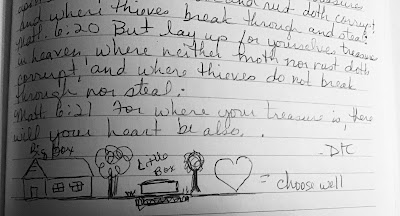 and rust doth corrupt
and where thieves break through and steal:
Matt. 6:20 But lay up for yourselves treasure
in heaven, where neither moth nor rust doth
corrupt, and where thieves do not break
through nor steal:
Matt 6:21 For where your treasure is, there
will your heart be also.
- DK
Big Box
Little Box
= choose well